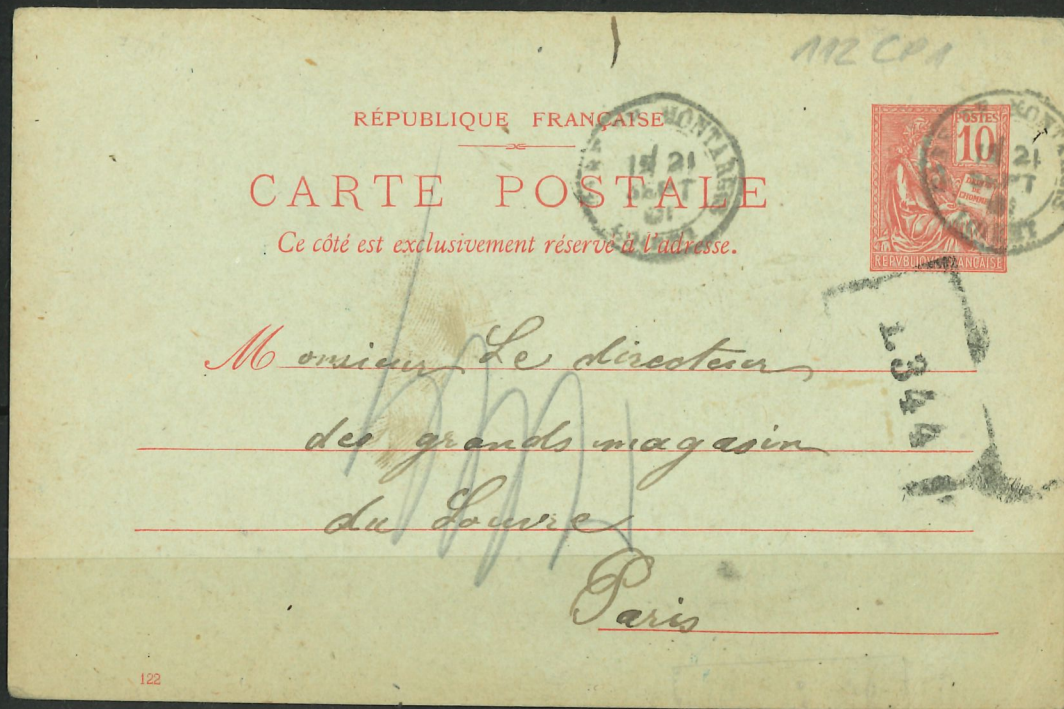 112 CP1
RÉPUBLIQUE FRANÇAISE
CARTE POSTALE
Ce côté est exclusivement réservé à l'adresse.
POSTES
10
RÉPUBLIQUE FRANÇAISE
MONTARGIS
21
SEPT
01
LOIRET
21
SEPT
01
1344
Monsieur Le directeur
des grands magasin
du Louvre
Paris
122